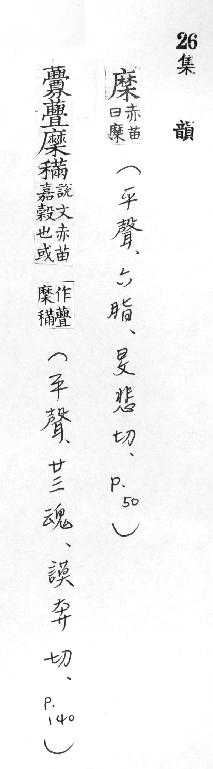 26集韻
穈赤苗曰穈（平聲、六脂、旻悲切、p.50）
虋亹穈𥡗說文赤苗嘉穀也或作亹穈𥡗（平聲、廿三魂、謨奔切、p.140）